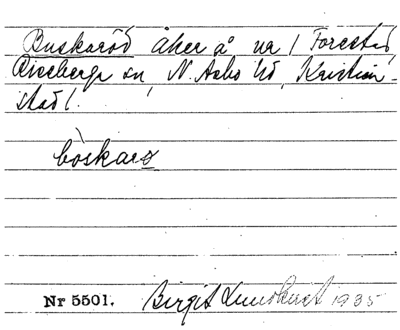 Buskaröd åker å nr 1 Forestad,
Riseberga sn, N. Åsbo hd, Kristian-
stad l.
bòskarø
Nr 5501. Birgit Lundkvist 1935